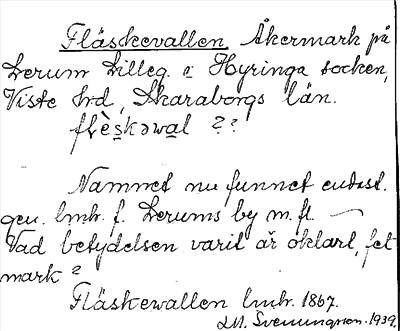 Fläskevallen Åkermark på
Lerum Lilleg. i Hyringa socken,
Viste hrd, Skaraborgs län.
flèskəwal ??
Namnet nu funnet endast.
gen. lmhr. f. Lerums by m. fl.
Vad betydelsen varit är oklart, fet
mark?
Fläskewallen lmhr. 1867.
LM. Svenungson. 1939.